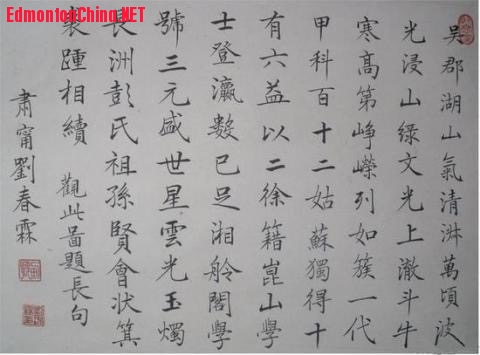 EdmontonChina.NET
吳郡湖山氣清淑萬頃波
光浸山綠文光上澈斗牛
寒高第崢嶸列如簇一代
甲科百十二姑蘇獨得十
有六益以二徐籍崑山學
士登瀛數已足湘舲閣學
號三元盛世星雲光玉燭
長洲彭氏祖孫賢會狀箕
裘踵相續 觀此啚題長句
肅甯劉春霖